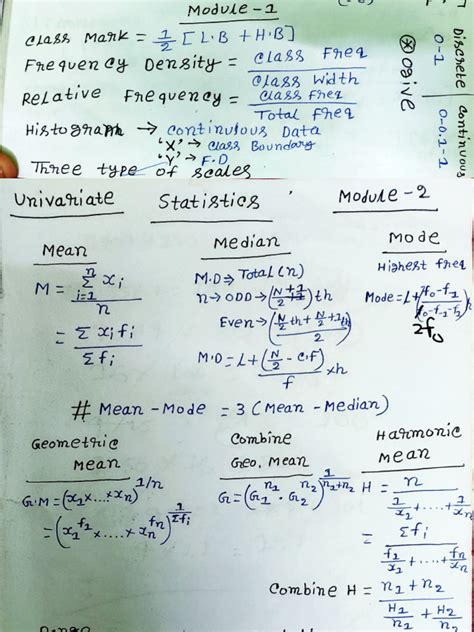 Module-1
Class Mark = 1/2 [L.B + H.B]
Frequency Density = Class Freq / Class Width
Relative Frequency = Class Freq / Total Freq
Histograph → continuous Data
'X' → Class Boundary
'Y' → F.D
Three type of scales
Discrete
0-1
continuous
0-0.1-1
⊛ ogive
Univariate Statistics Module-2
Mean
M = Σ_{i=1}^{n} x_i / n
= Σ x_i f_i / Σ f_i
Median
M.D ⇒ Total (n)
n → ODD → (N+1 / 2) th
Even → (N/2 th + N/2 + 1 th / 2)
M.D = L + (N/2 - c.f) / f × h
Mode
Highest freq
Mode = L +
2f_0
# Mean - Mode = 3 (Mean - Median)
Geometric Mean
G.M = (x_1 × .... × x_n)^{1/n}
= (x_1^{f_1} × ..... × x_n^{f_n})^{1/Σf_i}
Combine Geo. Mean
G = (G_1^{n_1} . G_2^{n_2})^{1/n_1+n_2}
Harmonic Mean
H = n / (1/x_1 + .... + 1/x_n)
= Σf_i / (f_1/x_1 + .... + f_n/x_n)
Combine H = n_1 + n_2 / (H_1/n_1 + H_2/n_2)